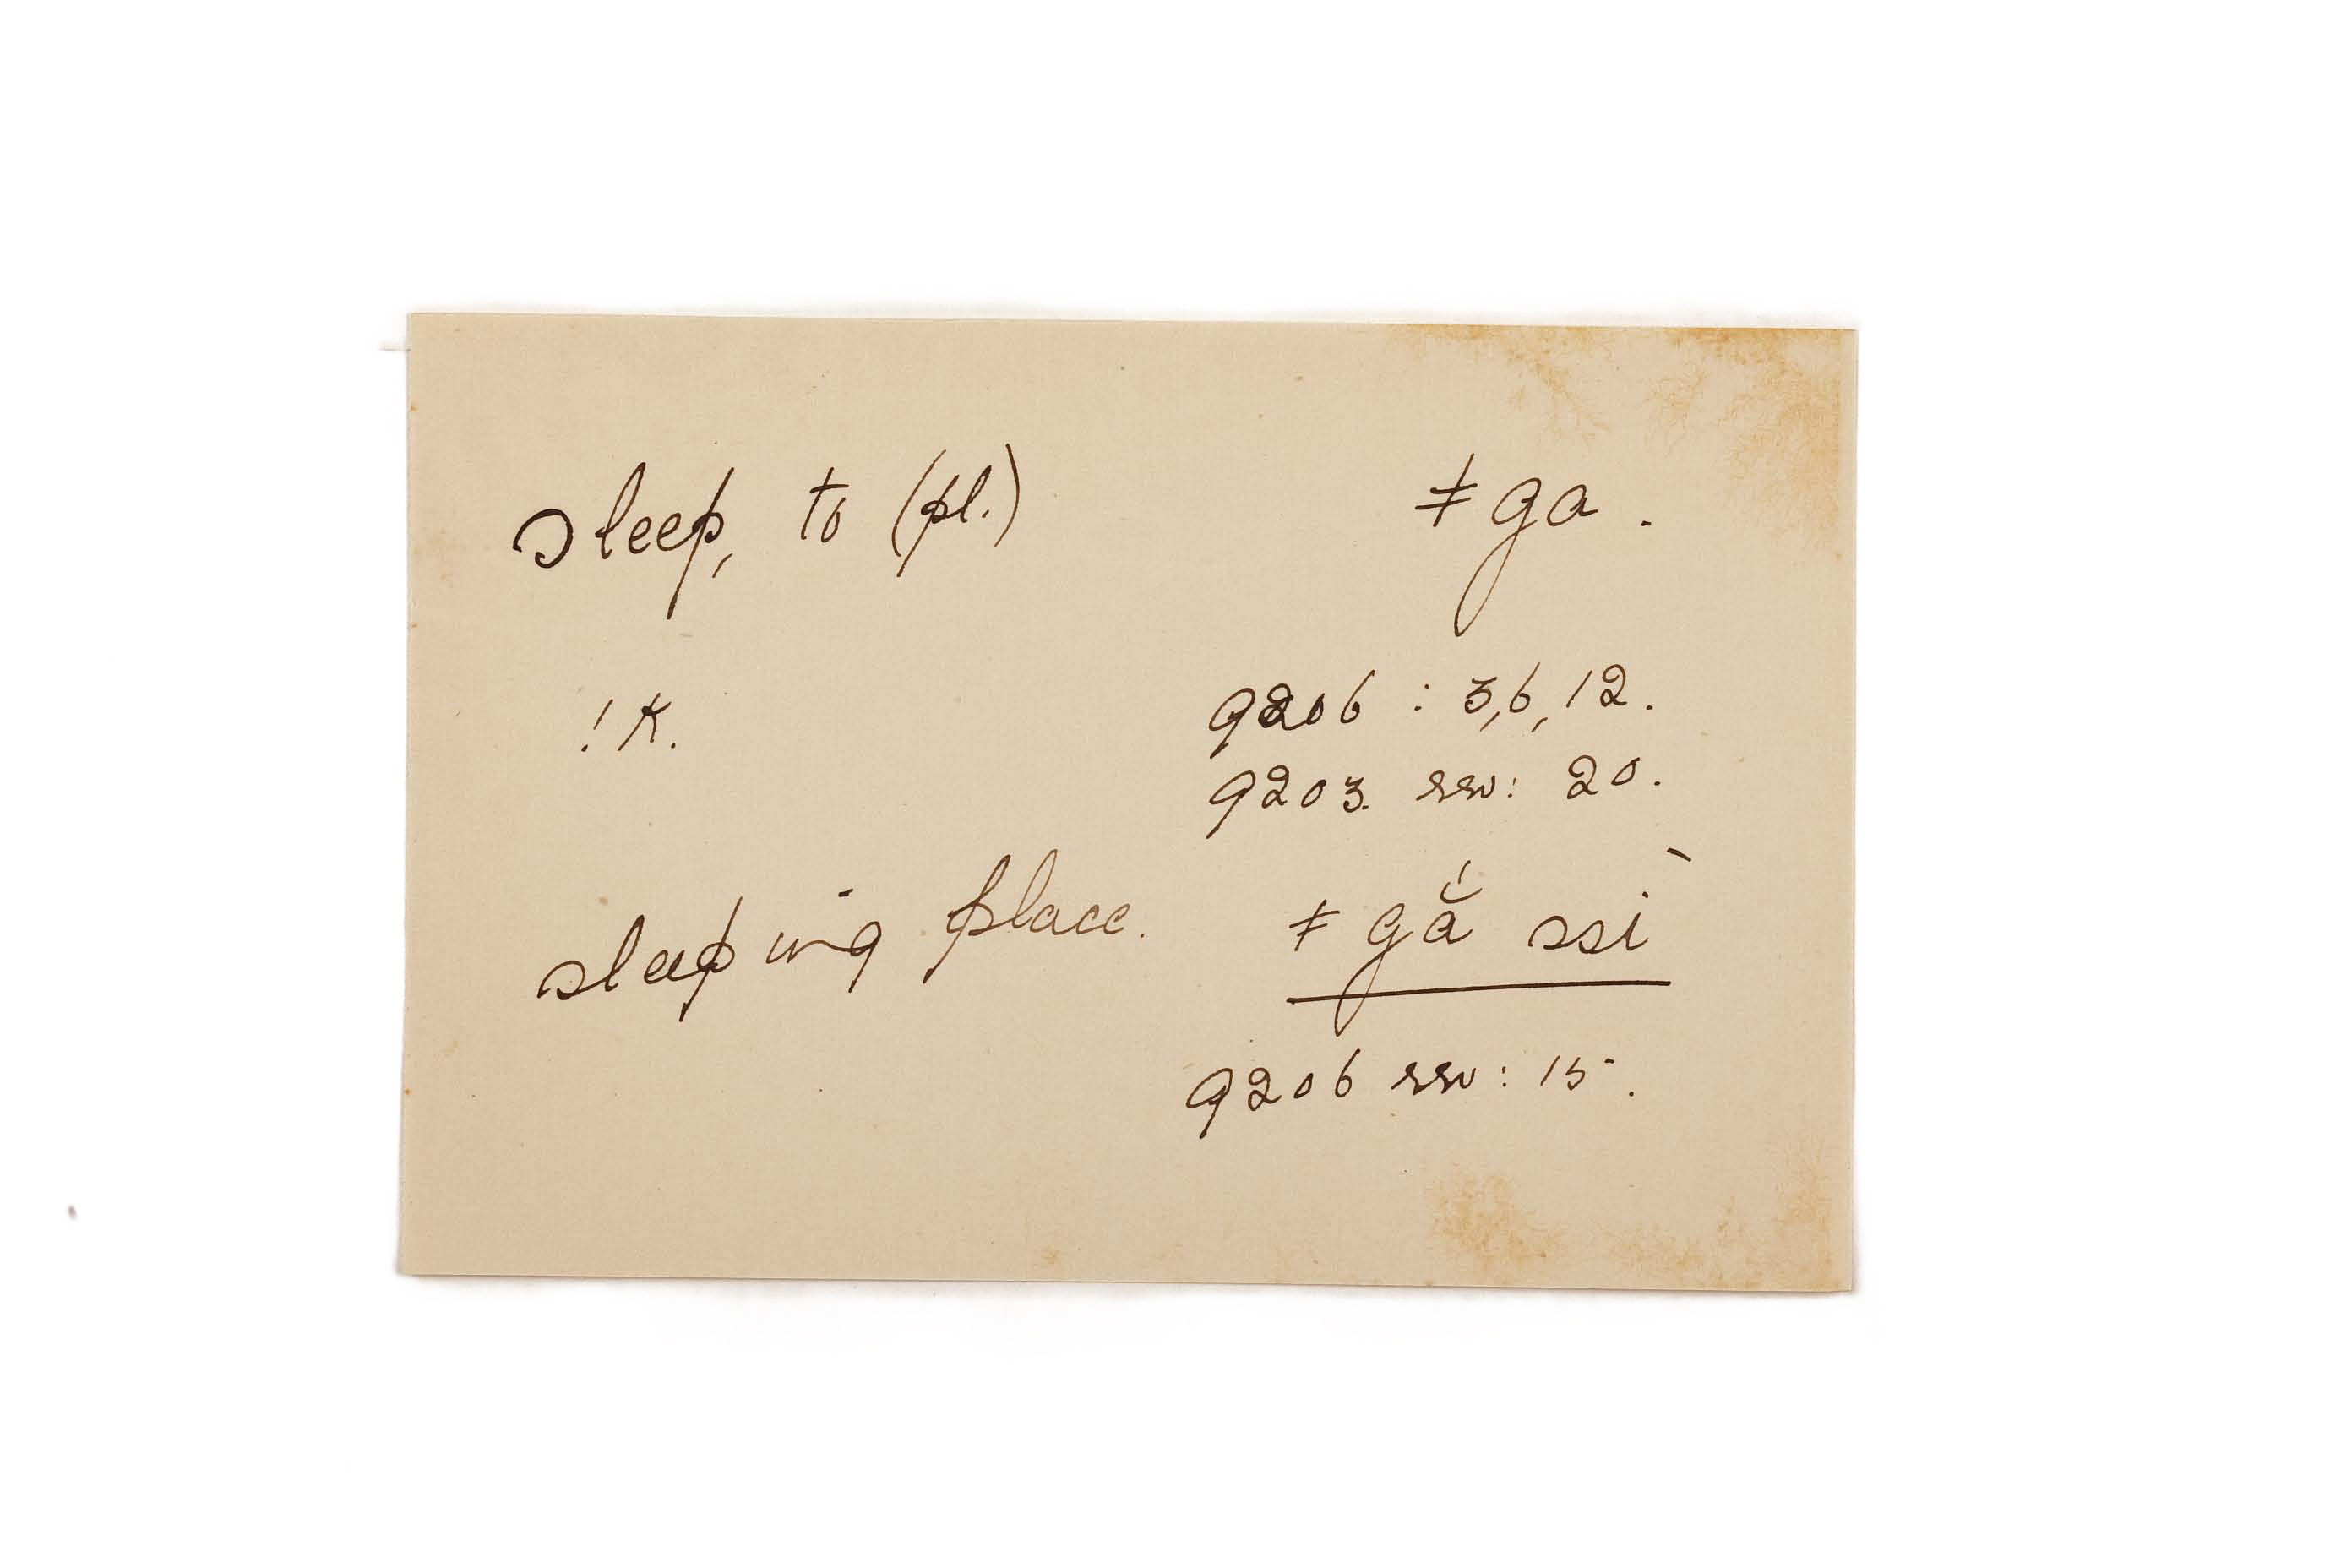 sleep, to (pl.) ǂ ga .
! K. 9206 : 3,6,12.
9203. rev: 20.
sleeping place. ǂ gắ ssi ̀
9206 rev: 15.